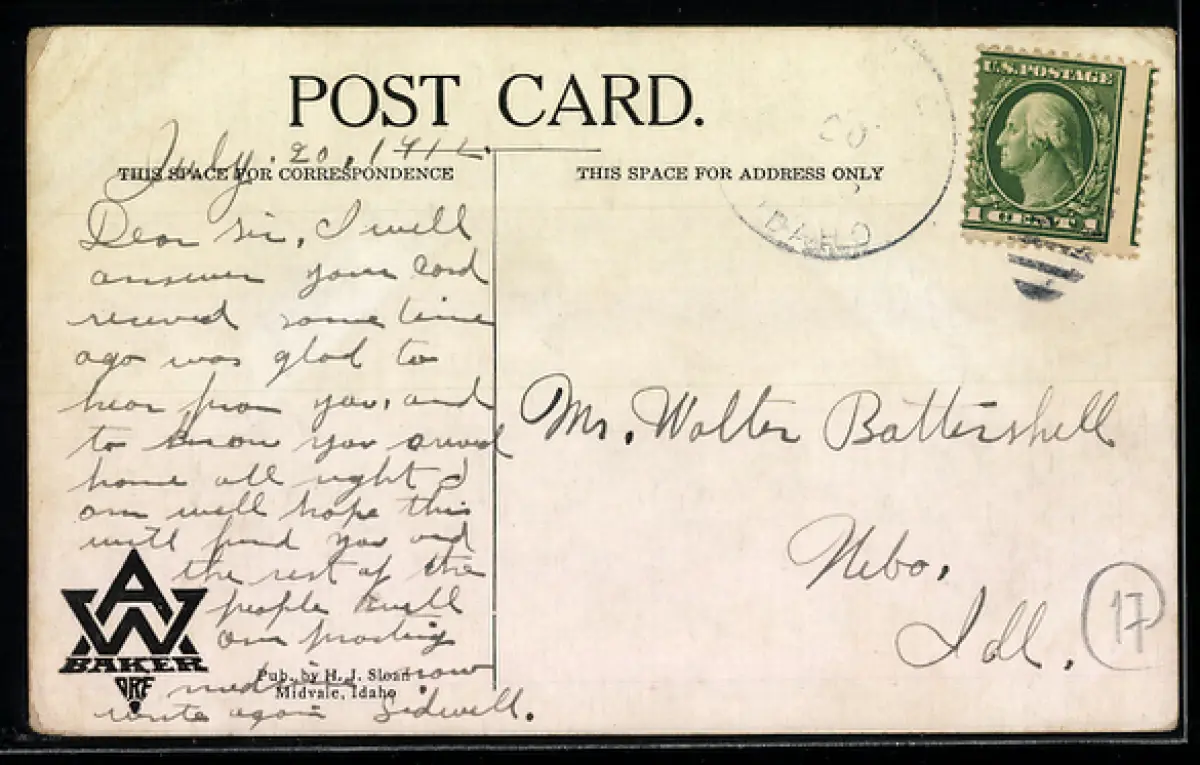 POST CARD.
July. 20, 1912.
THIS SPACE FOR CORRESPONDENCE
THIS SPACE FOR ADDRESS ONLY
U.S. POSTAGE
1 CENT 1
20
IDAHO
Dear Sir, I will
answer your card
received some time
ago was glad to
hear from you, and
to know you arived
home all right I
am well hope this
will find you and
the rest of the
people well
am
now
write again Sidwell.
Mr. Walter Battershell
Nebo,
Ill.
17
AW
BAKER
ORE
Pub. by H. J. Sloan
Midvale, Idaho